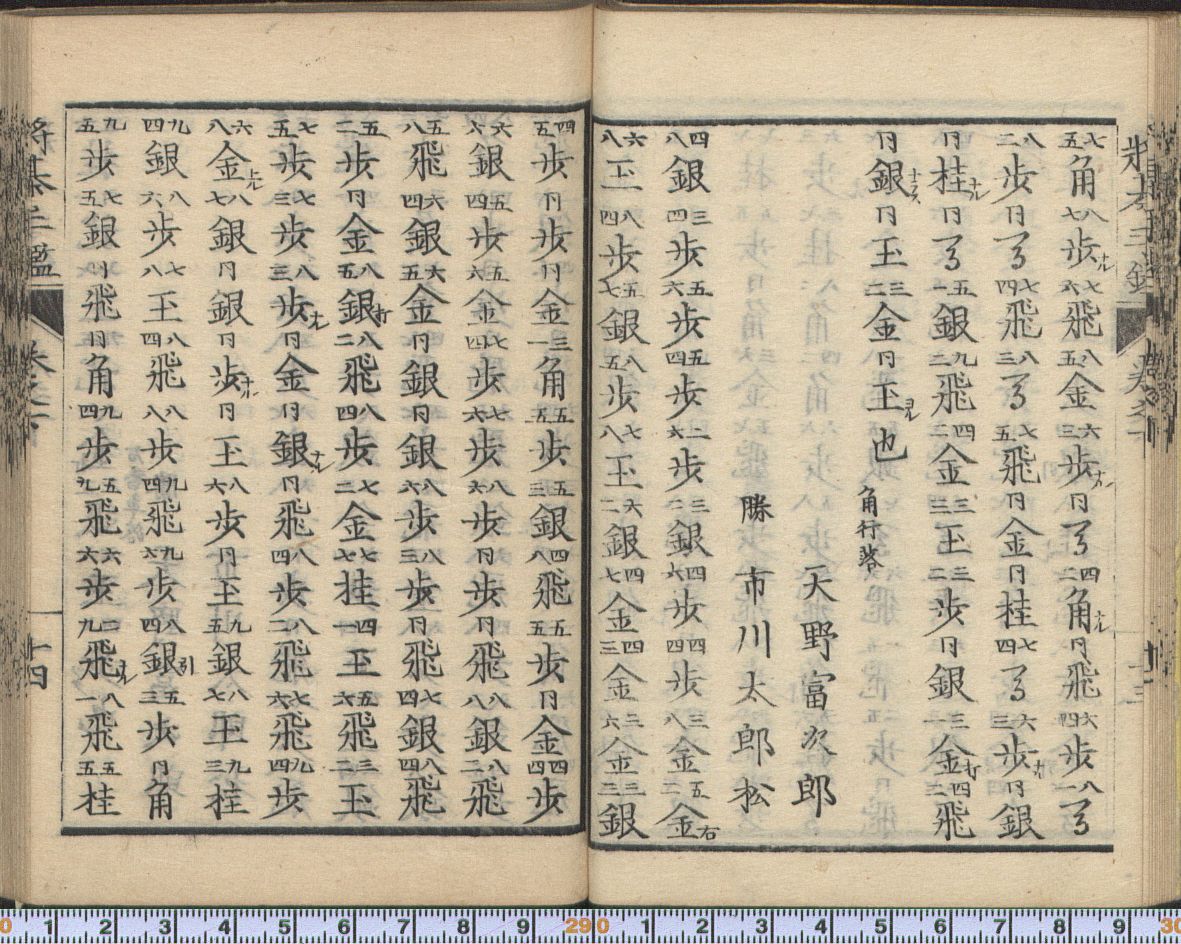 七五角八七歩ナル七六飛八五金六三歩ナル同馬四二角ナル同飛六四歩八一馬
八二歩同馬七四飛八三馬七五飛同金同桂七四馬六三歩ナル同銀
同桂ナル同馬五一銀九二飛四二金三三玉三二歩同銀金打飛
同銀ナラス同玉三二金同玉ヨル也
角行落
天野富次郎
勝市川太郎松
四八銀三四歩五六歩五四歩二六歩三二銀四六歩四四歩三八金五二金右
六八玉八四歩五七銀八五歩七八玉六二銀四七金四三金三六金三三銀
四五歩同歩同金三一角五五歩五三銀四八飛五五歩同金四四歩
六六銀五四歩五六金四四歩七六歩八六歩同歩同飛八八銀八二飛
五八飛四四銀六五金同銀同銀八六歩八三歩同飛七四銀八四飛
五二歩同金八五銀打八二飛八四歩七二金七七桂四一玉五六飛三二玉
七五歩七三歩八三歩ナル同金同銀ナル同飛八四歩八二飛七六飛九四歩
六八金上ル八七銀同銀同歩ナル同玉八六歩同玉九五銀八七玉九三桂
九四銀八六歩七八玉八四飛八八歩九四飛九六歩八四銀引五三歩同角
九五歩七五銀同飛同角九四歩五九飛六六歩二九飛ナル八一飛五五桂
将棊手鑑 巻之下 十四